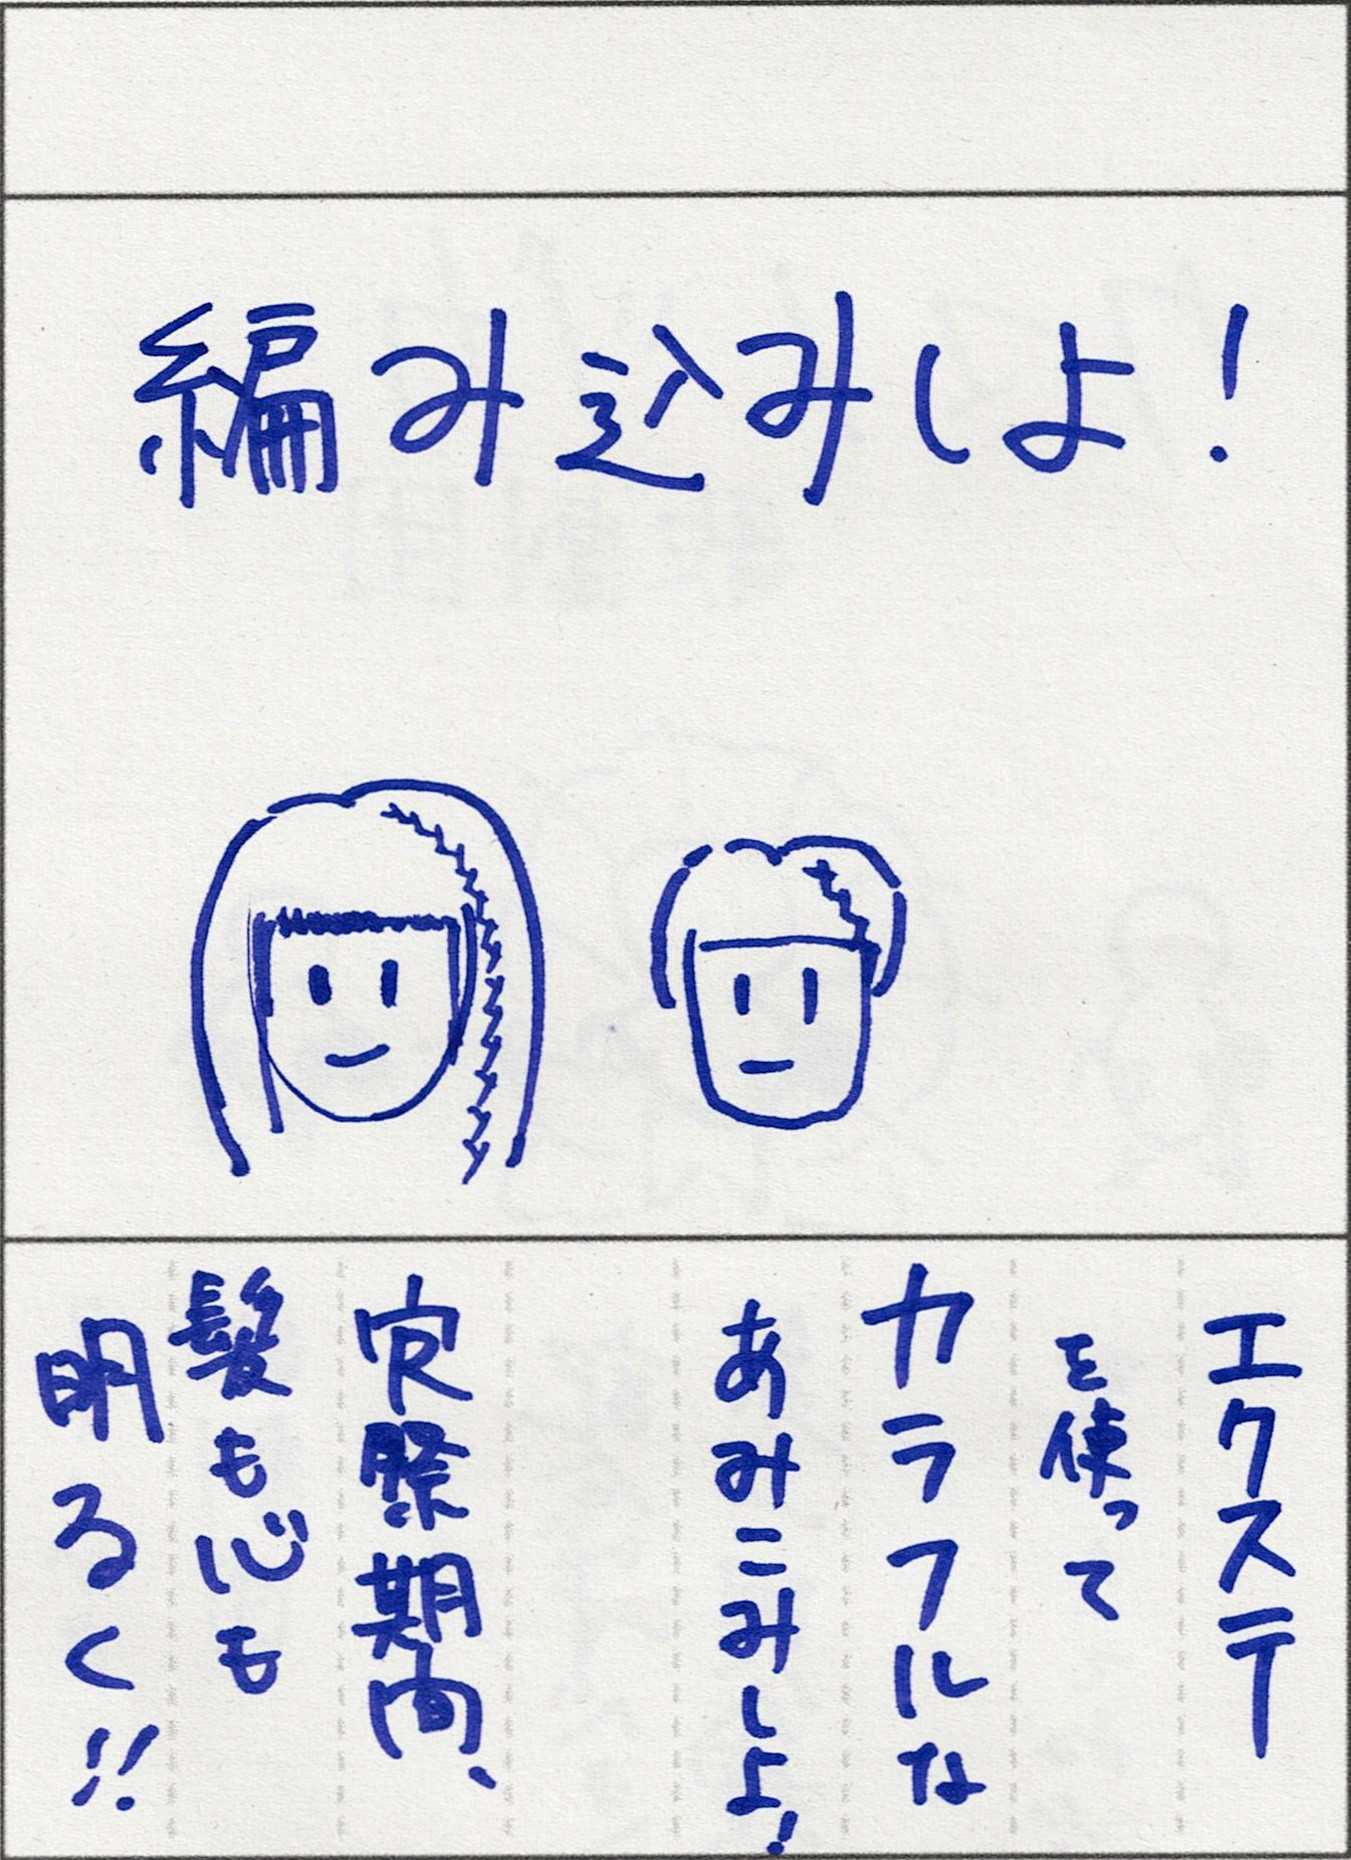 編み込みしよ!
エクステ
を使って
カラフルな
あみこみしよ!
定祭期間、
髪も心も
明るく!!